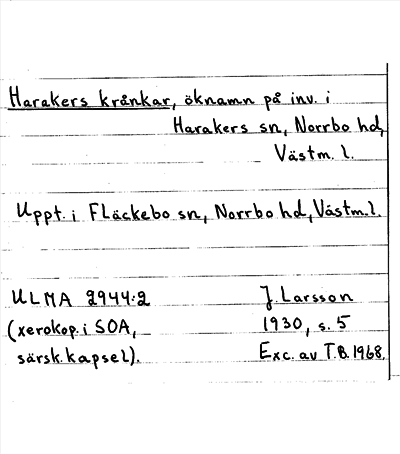 Harakers krånkar, öknamn på inv. i
Harakers sn, Norrbo hd,
Västm. l.
Uppt. i Fläckebo sn, Norrbo hd, Västm.l.
ULMA 2944:2
J. Larsson
(xerokop. i SOA,
1930, s. 5
särsk. kapsel).
Exc. av T.B. 1968.